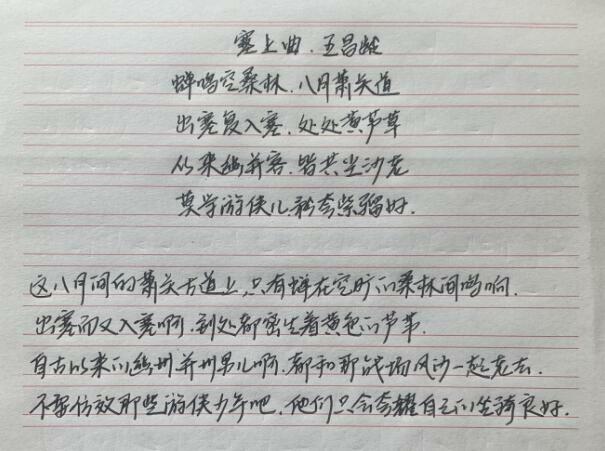 塞上曲.王昌龄
蝉鸣空桑林.八月萧关道
出塞复入塞.处处黄芦草
从来幽并客.皆共尘沙老
莫学游侠儿.矜夸紫骝好.
这八月间的萧关古道上,只有蝉在空旷的桑林间鸣响.
出塞而又入塞啊.到处都密生着黄色的芦苇.
自古以来的幽州并州男儿啊.都和那战场风沙一起老去.
不要仿效那些游侠少年吧.他们只会夸耀自己的坐骑良好.